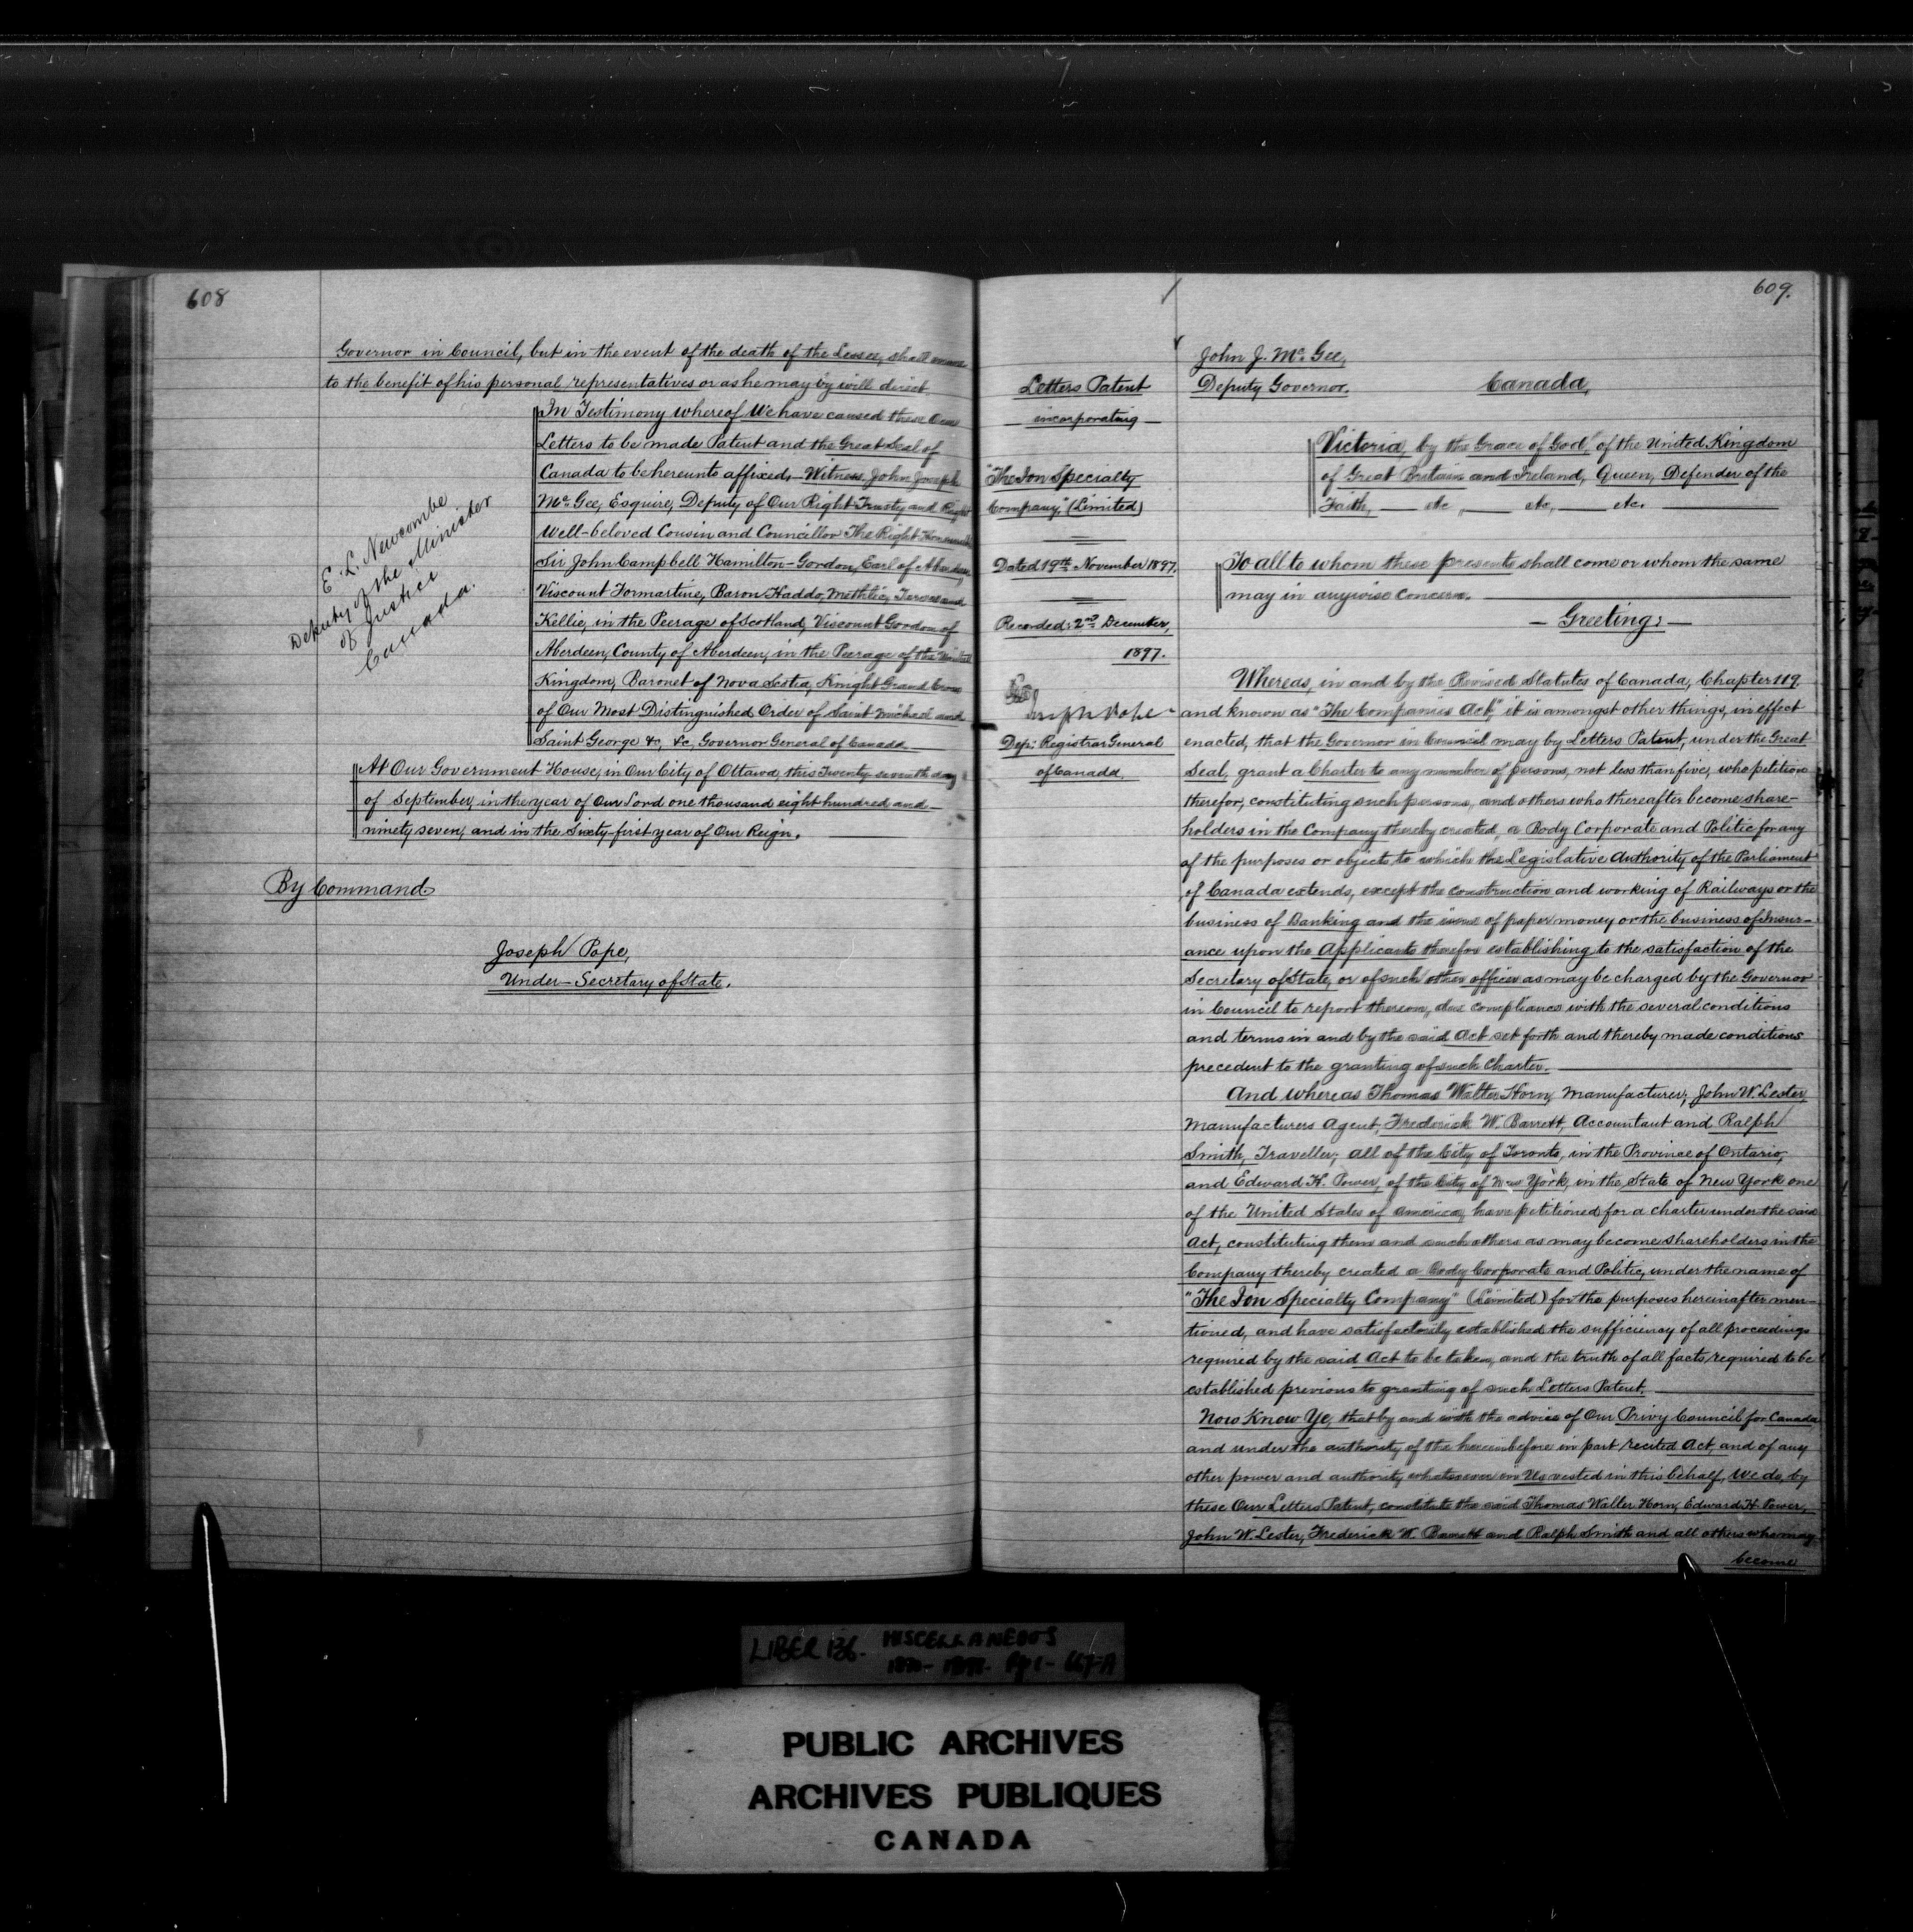 608
Governor in Council, but in the event of the death of the Lessee, shall
to the benefit of his personal representatives or as he may by will direct.
In Testimony whereof We have caused these Our
Letters to be made Patent and the Great Seal of
Canada to be hereunto affixed,—Witness, John Joseph
Mc Gee, Esquire, Deputy of Our Right Trusty and Right
Well-beloved Cousin and Councillor The Right Honourable
Sir John Campbell Hamilton-Gordon, Earl of Aberdeen,
Viscount Formartine, Baron Haddo, Methlic, Tarves and
Kellie, in the Peerage of Scotland, Viscount Gordon of
Aberdeen, County of Aberdeen, in the Peerage of the United
Kingdom, Baronet of Nova Scotia, Knight Grand Cross
of Our Most Distinguished Order of Saint Michael and
Saint George &c, &c, Governor General of Canada
At Our Government House, in Our City of Ottawa, this Twenty-seventh day
of September, in the year of Our Lord one thousand eight hundred and—
ninety seven, and in the Sixty-first year of Our Reign.
E. L. Newcombe
Deputy of the Minister
of Justice
Canada.
By Command.
Joseph Pope,
Under-Secretary of State.
609.
Letters Patent
incorporating
"The Ion Specialty
Company" (Limited)
Dated 19th November 1897.
Recorded: 2nd December,
1897.
Joseph Pope
Dep: Registrar General
of Canada.
John J. Mc Gee,
Deputy Governor. Canada,
Victoria, by the Grace of God, of the United Kingdom
of Great Britain and Ireland, Queen, Defender of the
Faith, — etc, — etc, — etc.
To all to whom these presents shall come or whom the same
may in anywise Concern.
— Greeting: —
Whereas, in and by the Revised Statutes of Canada, Chapter 119
and known as "The Companies Act," it is amongst other things, in effect
enacted, that the Governor in Council may by Letters Patent, under the Great
Seal, grant a Charter to any number of persons, not less than five, who petition
therefor, constituting such persons, and others who thereafter become share-
holders in the Company thereby created, a Body Corporate and Politic for any
of the purposes or objects to which the Legislative Authority of the Parliament
of Canada extends, except the construction and working of Railways or the
business of Banking and the issue of paper money or the business of Insur-
ance upon the Applicants therefor establishing to the satisfaction of the
Secretary of State, or of such other officer as may be charged by the Governor
in Council to report thereon, due compliance with the several conditions
and terms in and by the said Act set forth and thereby made conditions
precedent to the granting of such Charter.
And whereas Thomas Walter Horn, Manufacturer, John W. Lester,
Manufacturers Agent, Frederick W. Barrett, Accountant and Ralph
Smith, Traveller; all of the City of Toronto, in the Province of Ontario,
and Edward H. Power, of the City of New York, in the State of New York one
of the United States of America, have petitioned for a charter under the said
Act, constituting them and such others as may become shareholders in the
Company thereby created a Body Corporate and Politic, under the name of
"The Ion Specialty Company" (Limited) for the purposes hereinafter men-
tioned, and have satisfactorily established the sufficiency of all proceedings
required by the said Act to be taken, and the truth of all facts required to be
established previous to granting of such Letters Patent.
Now Know Ye, that by and with the advice of Our Privy Council for Canada
and under the authority of the hereinbefore in part recited Act, and of any
other power and authority whatsoever in Us vested in this behalf, We do, by
these Our Letters Patent, constitute the said Thomas Walter Horn, Edward H. Power,
John W. Lester, Frederick W. Barrett and Ralph Smith and all others who may
become
LIBER 136. MISCELLANEOUS
Pp 1- 667-A
PUBLIC ARCHIVES
ARCHIVES PUBLIQUES
CANADA